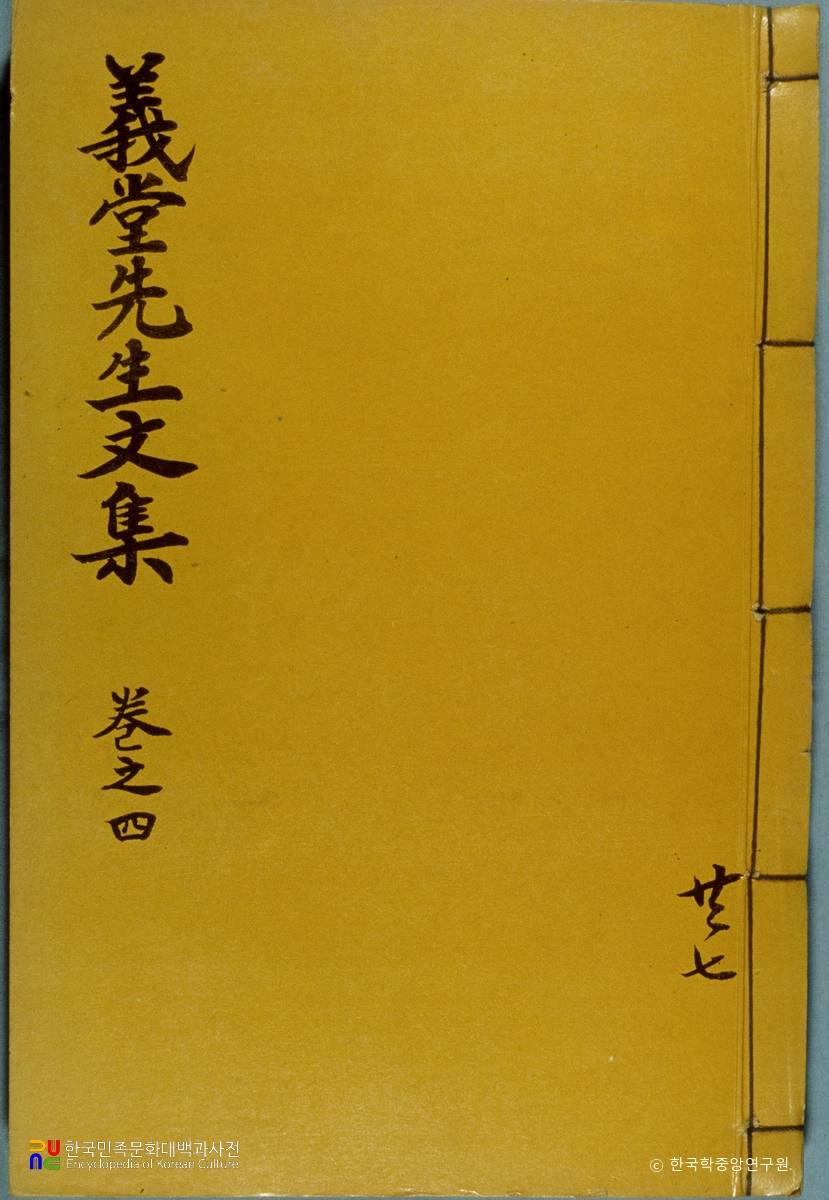 義堂先生文集
卷之四
共七
한국민족문화대백과사전
Encyclopedia of Korean Culture
© 한국학중앙연구원.